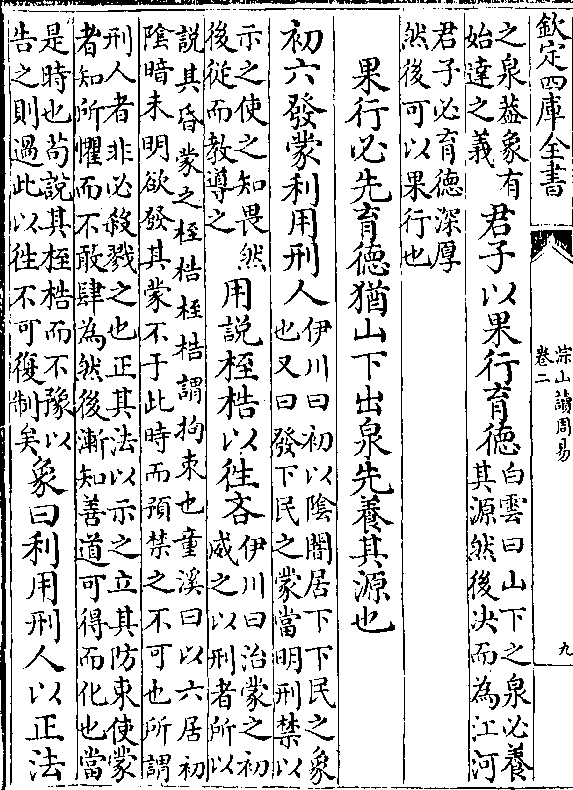 欽定四庫全書
淙山讀周易
卷二
九
之泉葢象有
始達之義
君子以果行育德
白雲曰山下之泉必養
其源然後決而為江河
君子必育德深厚
然後可以果行也
果行必先育德猶山下出泉先養其源也
初六發蒙利用刑人
伊川曰初以陰闇居下下民之象
也又曰發下民之蒙當明刑禁以
示之使之知畏然
後從而教導之
用説桎梏以往吝
伊川曰治蒙之初
威之以刑者所以
説其昏蒙之桎梏桎梏謂拘束也童溪曰以六居初
陰暗未明欲發其蒙不于此時而預禁之不可也所謂
刑人者非必殺戮之也正其法以示之立其防束使蒙
者知所懼而不敢肆為然後漸知善道可得而化也當
是時也苟説其桎梏而不豫以
告之則過此以往不可復制矣
象曰利用刑人以正法